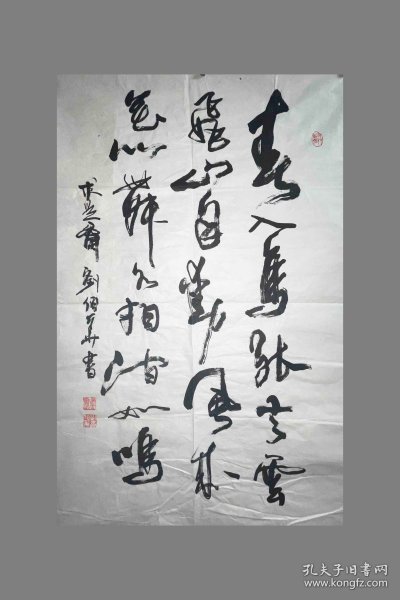 春入鳥能言雲
飛山自動風來
花舞相如鳴
求是齋 劉伯華書
孔夫子旧书网
www.kongfz.com